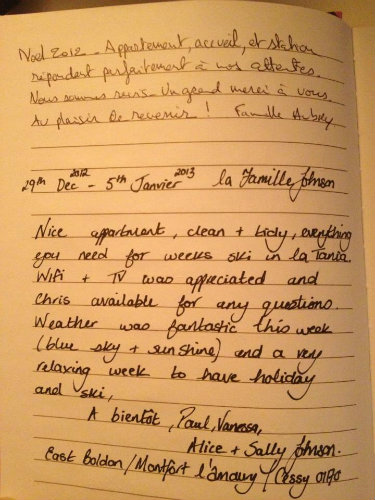 Noël 2012 - Appartement, accueil, et station
répondent parfaitement à nos attentes.
Nous sommes ravis. Un grand merci à vous.
Au plaisir de revenir ! Famille Aubry
29th Dec 2012 - 5th Janvier 2013 la Famille Johnson
Nice appartment, clean + tidy, everything
you need for weeks ski in la Tania.
Wifi + TV was appreciated and
Chris available for any questions.
Weather was fantastic this week
(blue sky + sunshine) and a very
relaxing week to have holiday
and ski,
A bientôt, Paul, Vanessa,
Alice + Sally Johnson.
East Boldon / Montfort l'amaury / Cessy 01170